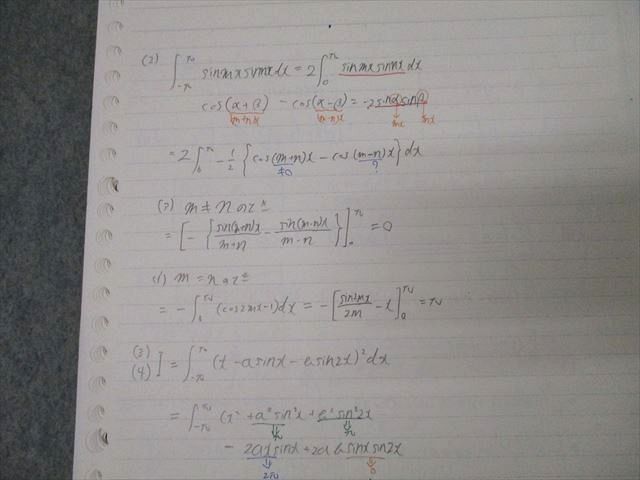 (2) ∫_{-π}^{π} sin mx sin nx dx = 2∫_{0}^{π} sin mx sin nx dx
cos(α+β) - cos(α-β) = -2 sin α sin β
(m+n)x (m-n)x mx nx
= 2∫_{0}^{π} -1/2 {cos(m+n)x - cos(m-n)x} dx
≠0 ?
(ア) m ≠ n のとき
= [-{sin(m+n)x/(m+n) - sin(m-n)x/(m-n)}]_{0}^{π} = 0
(イ) m = n のとき
= -∫_{0}^{π} (cos 2mx - 1) dx = -[sin 2mx/2m - x]_{0}^{π} = π
(3)
(4) I = ∫_{-π}^{π} (x - a sin x - b sin 2x)² dx
= ∫_{-π}^{π} (x² + a² sin² x + b² sin² 2x
π π
- 2ax sin x + 2ab sin x sin 2x
2π 0